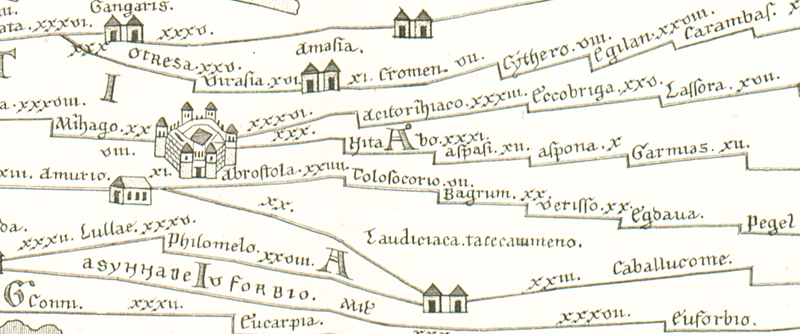 Gangaris.
ata. xxxvi.
xxxv.
amasia.
Cythero. viii.
Egilan. xxviii.
Carambas. x
xxx
Otresa. xxv.
Virasia. xvi.
xi. Cromen. vii.
T
I
a. xxxviii.
xxxvi.
acitorihiaco. xxxiii.
Eccobriga. xxv.
Lassora. xvii.
Mihago. xx
viii.
xxx.
A
bo. xxxi.
aspasi. xii.
aspona. x
Garmias. xii.
xiii. amurio.
xi.
abrostola. xxiiii.
Tolosocorio. vii.
Bagrum. xx.
Verisso. xx.
Egdaua.
Pegel
xx.
Laudiciaca.
da.
xxxii. Lullae. xxxv.
Philomelo. xxviii.
A
I
Forbio.
xxiii.
Caballucome.
G
Conni.
xxxii.
Eucarpia.
xxxvii.
Euforbio.